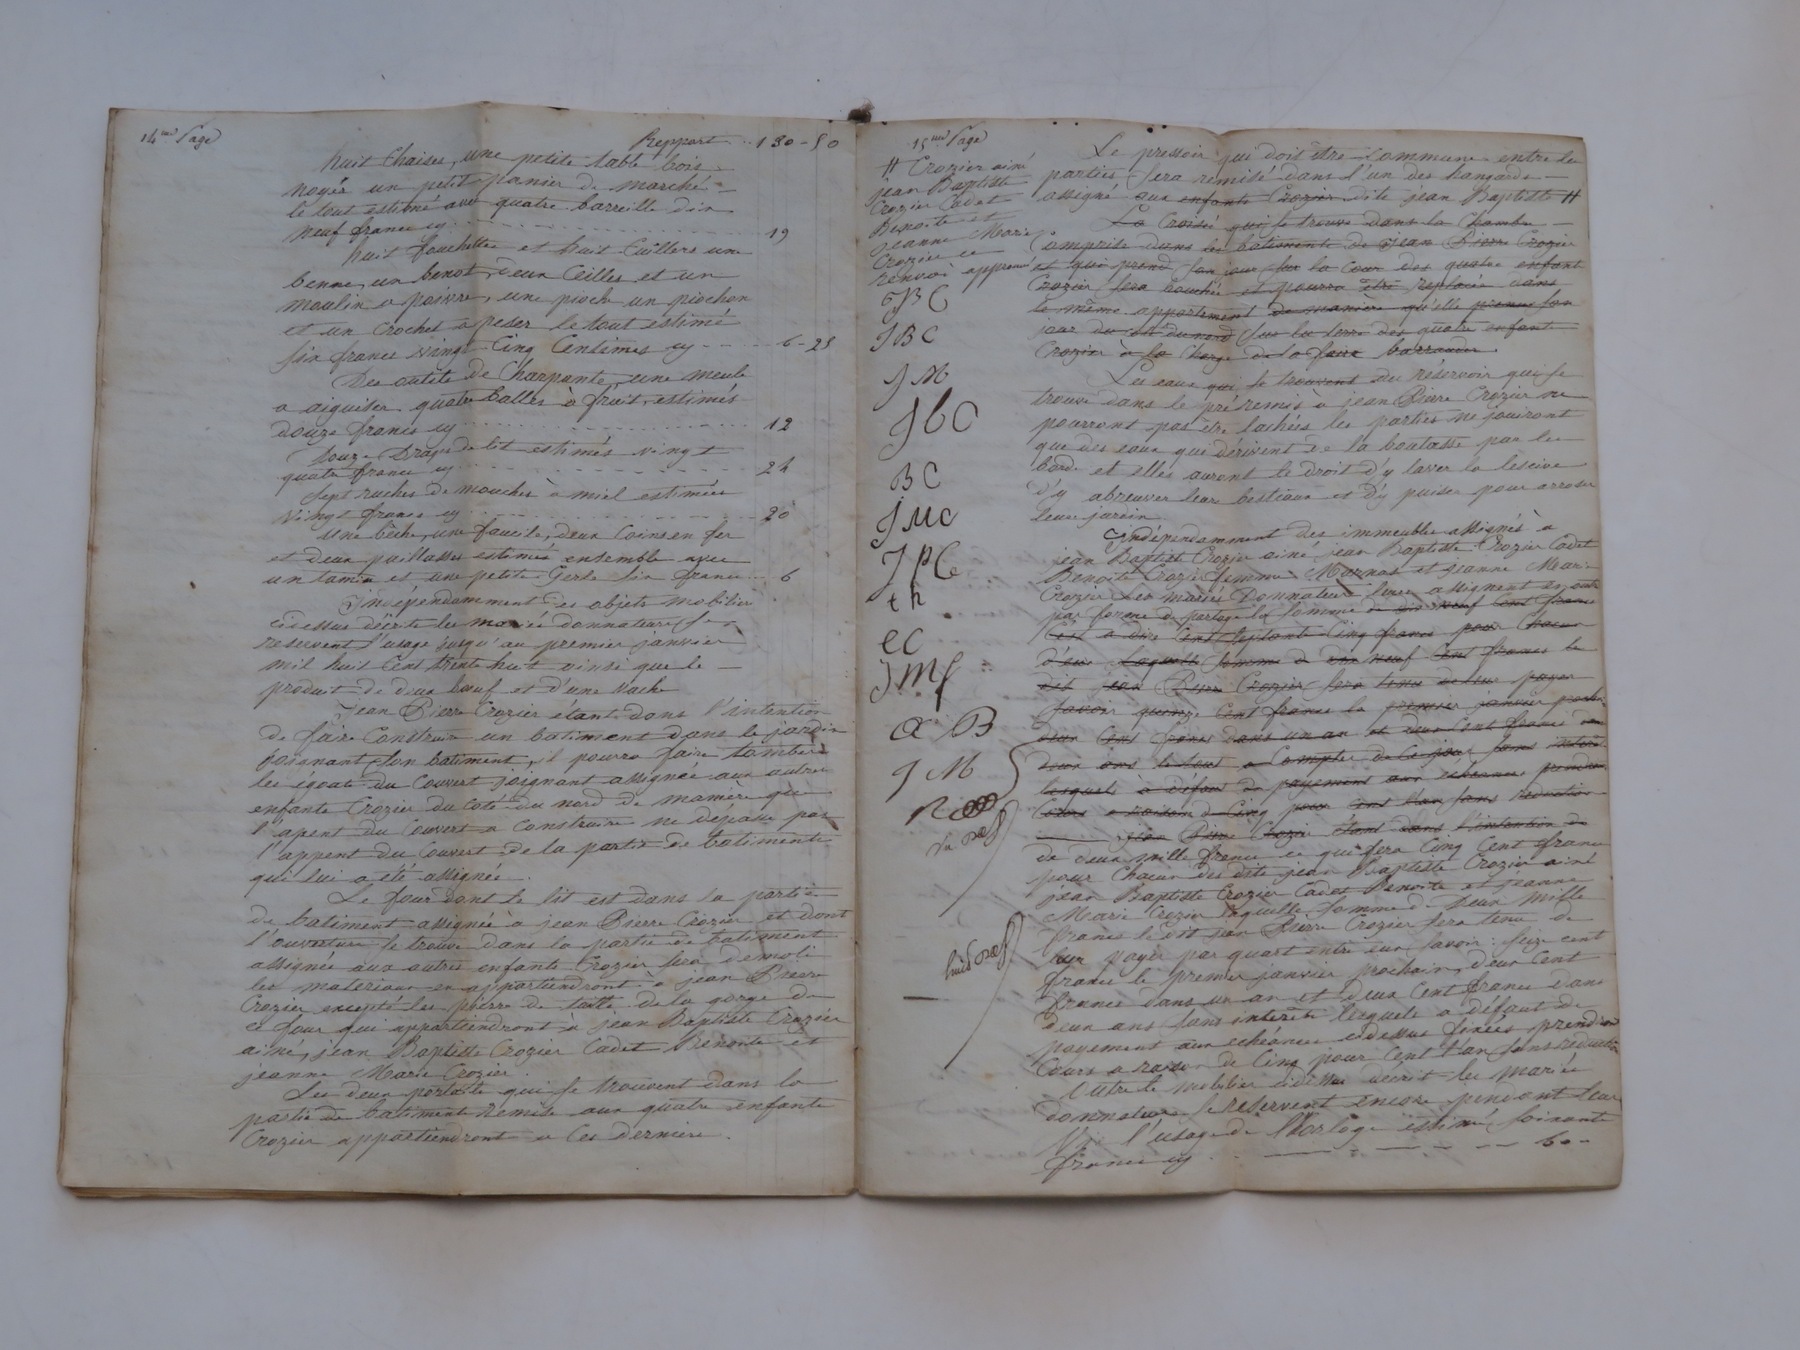 14me Page
Report 130-50
huit Chaises, une petite table bois
noyer un petit panier de marché
le tout estimé avec quatre barreille dix
neuf francs cy 19
huit fouchettes et huit Cuillers une
benne, un benot, deux Ceilles et un
moulin a poivre, une pioche un piochon
et un Crochet a peser le tout estimé
six francs vingt Cinq Centimes cy 6-25
Des outils de Charpente, une meule
a aiguiser quatre balles à fruit, estimés
douze francs cy 12
Douze Draps de lit estimés vingt
quatre francs cy 24
Sept ruches de mouches à miel estimées
vingt francs cy 20
une bêche, une faucile, deux Coins en fer
et deux paillasses estimés ensemble avec
un tamis et une petite Gerle six francs 6
Indépendamment des objets mobilier
cidessus décrits les mariés donnateurs se
reservent l'usage jusqu'au premier janvier
mil huit Cent trente huit ainsi que le
produit de deux boeuf et d'une vache
Jean Pierre Crozier étant dans l'intention
de faire Construire un batiment dans le jardin
joignant son batiment, il pourra faire tomber
les égouts du Couvert joignant assignée aux autres
enfants Crozier du Coté du nord de manière que
l'apent du Couvert a construire ne dépasse pas
l'appent du Couvert de la partie de batiments
qui lui a été assignée.
Le four dont le lit est dans la partie
de batiment assignée à jean Pierre Crozier et dont
l'ouverture se trouve dans la partie de batiment
assignée aux autres enfants Crozier sera demoli
les materiaux en appartiendront à jean Pierre
Crozier excepté les pierre de taille de la gorge de
ce four qui appartiendront à jean Baptiste Crozier
ainé, jean Baptiste Crozier Cadet Benoite et
jeanne Marie Crozier.
Les deux portails qui se trouvent dans la
partie de batiment remise aux quatre enfants
Crozier appartiendront a Ces derniers.
15me Page
# Crozier ainé
jean Baptiste
Crozier Cadet
Benoite et
jeanne Marie
Crozier ce
renvoi approuvé
JBC
JBC
JM
JbC
BC
JMC
JPC
th
CC
JMf
a B
J M
Le pressoir qui doit être Commune entre les
parties sera remisé dans l'un des hangards
assigné aux enfants Crozier dits jean Baptiste #
La Croisée qui se trouve dans la Chambre
Comprise dans les batiments de Jean Pierre Crozier
et qui prend son jour sur la Cour des quatre enfant
Crozier sera bouchée et pourra être replacée dans
le même appartement de manière qu'elle prenne son
jour du coté du nord sur la terre des quatre enfant
Crozier à la Charge de la faire barrauder.
Les eaux qui se trouvent du réservoir qui se
trouve dans le pré remis à jean Pierre Crozier ne
pourront pas être lachées les parties ne jouiront
que des eaux qui dérivent de la boutasse par les
bords et elles auront le droit d'y laver la lescive
d'y abreuver leurs bestiaux et d'y puiser pour arroser
leurs jardin
Indépendamment des immeubles assignés à
jean Baptiste Crozier ainé jean Baptiste Crozier Cadet
Benoite Crozier femme Marnas et jeanne Marie
Crozier Les mariés Donnateurs leurs assignent en outre
par forme de partage la somme de dix neuf Cent francs
C'est a dire Cent septante Cinq francs pour Chacun
d'eux laquelle somme de dix neuf Cent francs le
dit jean Pierre Crozier sera tenu de leur payer
Savoir quinze Cent francs le premier janvier prochain
deux Cent francs dans un an et deux Cent francs dans
deux ans le tout a Compter de Ce jour sans intérêt
lesquels à défaut de payement aux échéances prendront
Cours a raison de Cinq pour Cent l'an sans réduction
Jean Pierre Crozier étant dans l'intention de
de deux mille francs ce qui fera Cinq Cent francs
pour Chacun des dits jean Baptiste Crozier ainé
jean Baptiste Crozier Cadet Benoite et jeanne
Marie Crozier laquelle somme de Deux Mille
francs le dit jean Pierre Crozier sera tenu de
leur payer par quart entre eux savoir: Seize cent
francs le premier janvier prochain, deux Cent
francs dans un an et deux Cent francs dans
deux ans sans intérêts lesquels a défaut de
payement aux échéances cidessus fixées prendront
Cours a raison de Cinq pour Cent l'an sans réduction
Outre le mobilier cidessus décrit les mariés
donnateurs se reservent encore pendant leur
vie l'usage de l'horloge estimé soixante
francs cy 60-